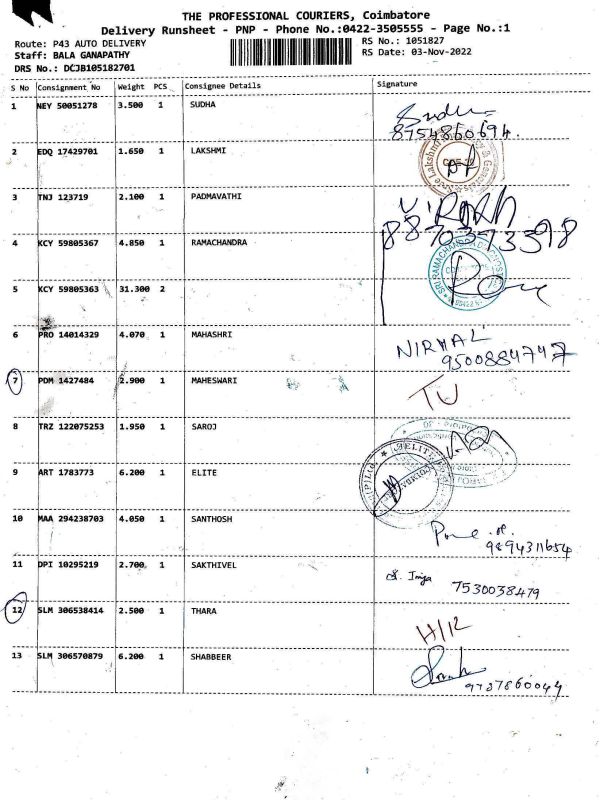 THE PROFESSIONAL COURIERS, Coimbatore
Delivery Runsheet - PNP - Phone No.:0422-3505555 - Page No.:1
Route: P43 AUTO DELIVERY
RS No.: 1051827
Staff: BALA GANAPATHY
RS Date: 03-Nov-2022
DRS No.: DCJB105182701
S No Consignment No Weight PCS Consignee Details Signature
1 NEY 50051278 3.500 1 SUDHA Sudha
8754860694
2 EDQ 17429701 1.650 1 LAKSHMI
3 TNJ 123719 2.100 1 PADMAVATHI
8870373398
4 KCY 59805367 4.850 1 RAMACHANDRA
SRI RAMACHANDRA
5 KCY 59805363 31.300 2
6 PRO 14014329 4.070 1 MAHASHRI NIRMAL
9500884747
7 PDM 1427484 2.900 1 MAHESWARI TU
8 TRZ 122075253 1.950 1 SAROJ
9 ART 1783773 6.200 1 ELITE
10 MAA 294238703 4.050 1 SANTHOSH
9894311654
11 DPI 10295219 2.700 1 SAKTHIVEL
7530038479
12 SLM 306538414 2.500 1 THARA H/12
13 SLM 306570879 6.200 1 SHABBEER